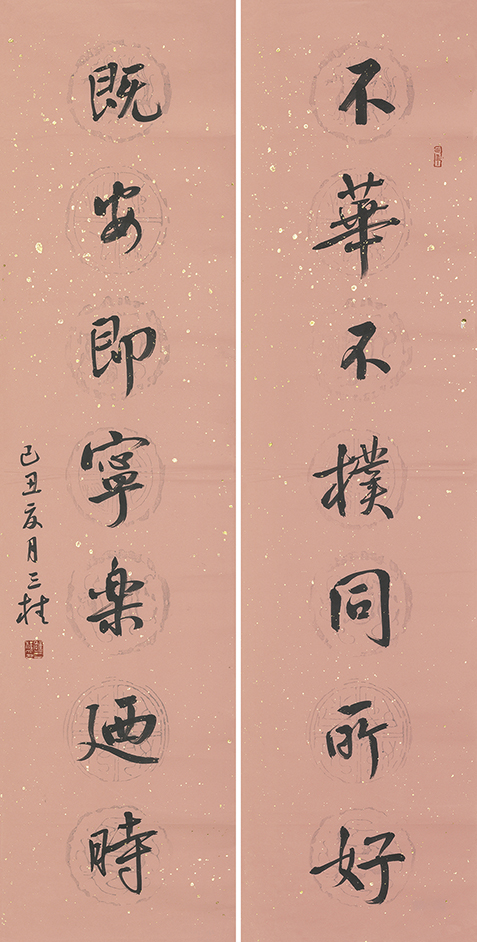 不華不樸同所好
既安即寧楽廼時
己丑夏月三桂